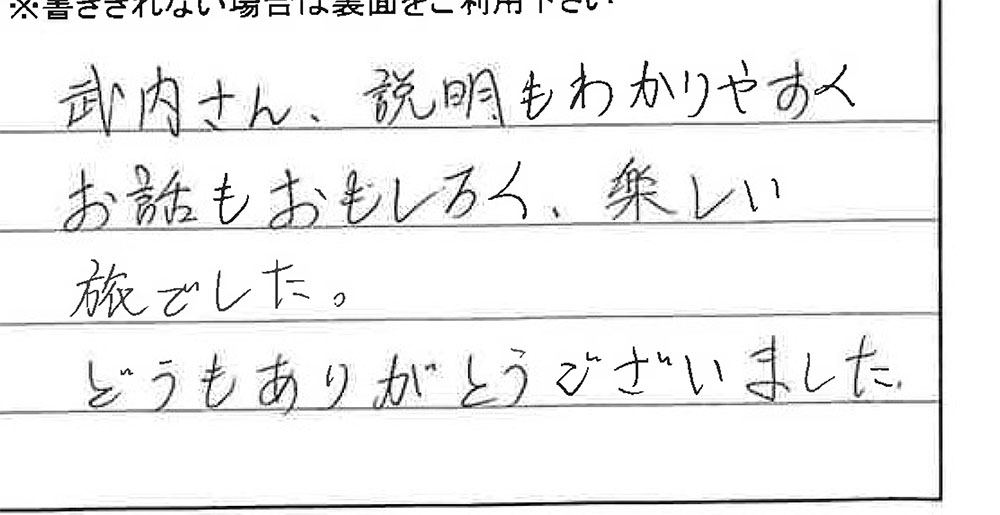 ※書ききれない場合は裏面をご利用下さい
武内さん、説明もわかりやすく
お話もおもしろく、楽しい
旅でした。
どうもありがとうございました.